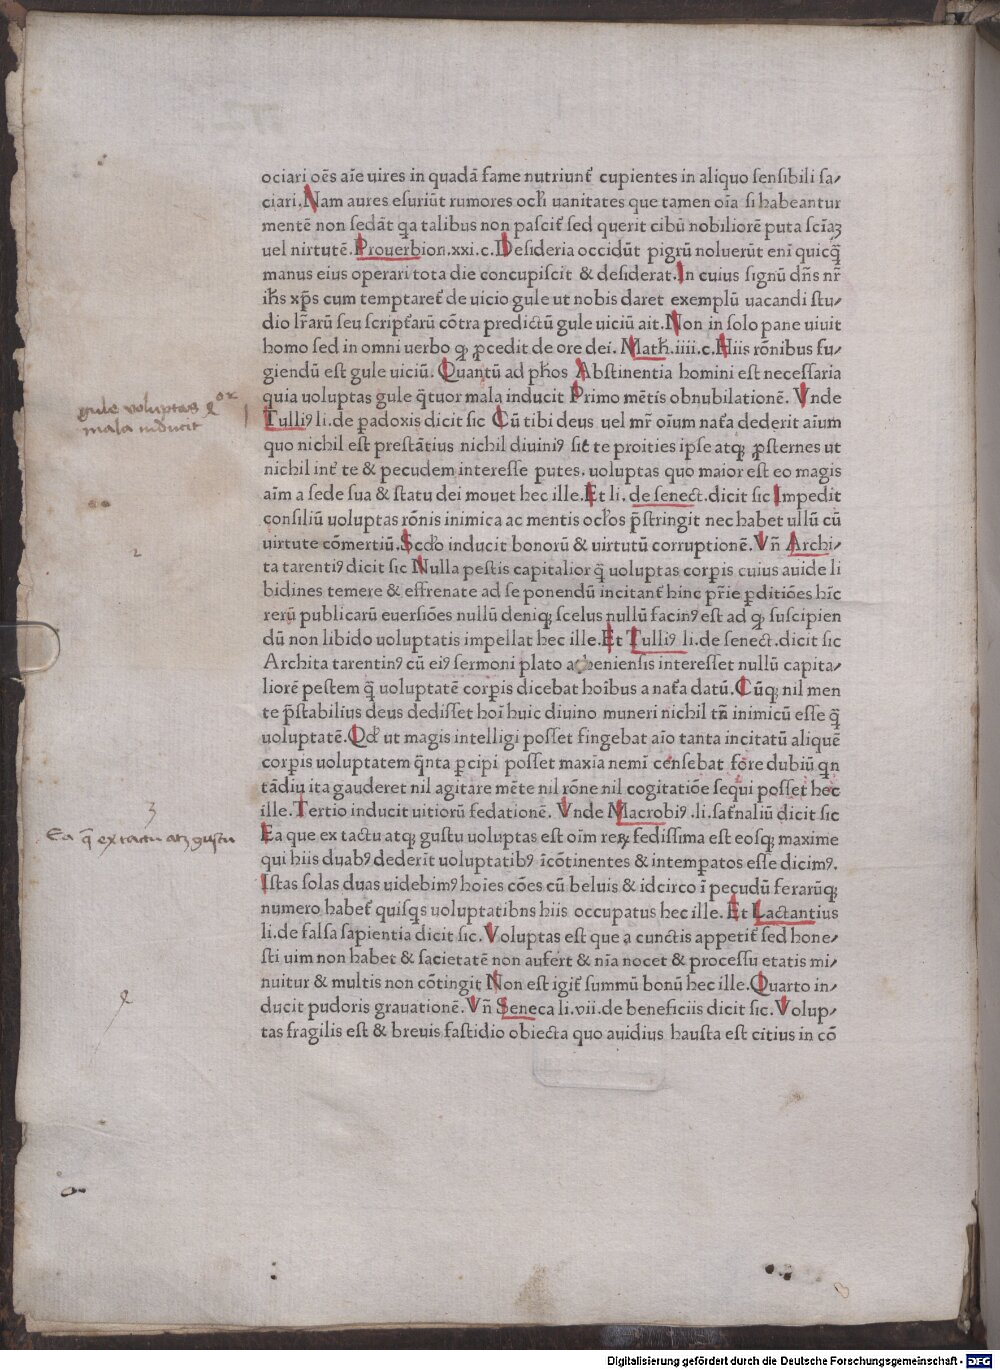 ociari oēs aīe uires in quadā fame nutriunt᷑ cupientes in aliquo sensibili sa⸗
ciari. Nam aures esuriūt rumores ocłi uanitates que tamen oīa si habeantur
mentē non sedāt qa talibus non pascit᷑ sed querit cibū nobiliorē puta scīaꝫ
uel nirtutē. Prouerbion.xxi.c. Desideria occidūt pigrū noluerūt enī quicq̄
manus eius operari tota die concupiscit & desiderat. In cuius signū dn̄s nr̄
iħs xp̄s cum temptaret᷑ de uicio gule ut nobis daret exemplū uacandi stu⸗
dio lr̄arū seu script᷑arū cōtra predictū gule uiciū ait. Non in solo pane uiuit
homo sed in omni uerbo qꝫ ꝓcedit de ore dei. Matħ.iiii.c. Hiis rōnibus fu⸗
giendū est gule uiciū. Quantū ad pħos Abstinentia homini est necessaria
quia uoluptas gule q̄tuor mala inducit Primo mētis obnubilationē. Vnde
Tulliꝰ li. de ꝑadoxis dicit sic Cū tibi deus uel mr̄ oīum nat᷑a dederit aīum
quo nichil est prestātius nichil diuiniꝰ sic᷑ te proities ipse atqꝫ ꝓsternes ut
nichil int᷑ te & pecudem interesse putes. uoluptas quo maior est eo magis
aīm a sede sua & statu dei mouet hec ille. Et li. de senect. dicit sic Impedit
consiliū uoluptas rōnis inimica ac mentis ocłos p̄stringit nec habet ullū cū
uirtute cōmertiū. Scd̄o inducit bonorū & uirtutū corruptionē. Vn̄ Archi⸗
ta tarentiꝰ dicit sic Nulla pestis capitalior q̄ uoluptas corꝑis cuius auide li
bidines temere & effrenate ad se ponendū incitant᷑ hinc pr̄ie ꝑditiōes hīc
rerū publicarū euersiōes nullū deniqꝫ scelus nullū facinꝰ est ad qꝫ suscipien
dū non libido uoluptatis impellat hec ille. Et Tulliꝰ li. de senect. dicit sic
Archita tarentinꝰ cū eiꝰ sermoni plato atheniensis interesset nullū capita⸗
liorē pestem q̄ uoluptatē corꝑis dicebat hoībus a nat᷑a datū. Cūqꝫ nil men
te p̄stabilius deus dedisset hoī huic diuino muneri nichil tn̄ inimicū esse q̄
uoluptatē. Qđ ut magis intelligi posset fingebat aīo tanta incitatū aliquē
corꝑis uoluptatem q̄nta ꝑcipi posset maxia nemī censebat fore dubiū qn
tādiu ita gauderet nil agitare mēte nil rōne nil cogitatiōe sequi posset hec
ille. Tertio inducit uitiorū fedationē. Vnde Macrobiꝰ. li. sat᷑naliū dicit sic
Ea que ex tactu atqꝫ gustu uoluptas est oīm reꝝ fedissima est eosqꝫ maxime
qui hiis duabꝰ dederīt uoluptatibꝰ īcōtinentes & intemꝑatos esse dicimꝰ.
Istas solas duas uidebimꝰ hoies cōes cū beluis & idcirco ī pecudū ferarūqꝫ
numero habet᷑ quisq̄s uoluptatibns hiis occupatus hec ille. Et Lactantius
li. de falsa sapientia dicit sic. Voluptas est que a cunctis appetit᷑ sed hone⸗
sti uim non habet & sacietatē non aufert & nīa nocet & processu etatis mi⸗
nuitur & multis non cōtingit Non est igit᷑ summū bonū hec ille. Quarto in⸗
ducit pudoris grauationē. Vn̄ Seneca li. vii. de beneficiis dicit sic. Volup⸗
tas fragilis est & breuis fastidio obiecta quo auidius hausta est citius in cō
gule voluptas 4or
mala inducit
2
3
Ea q̄ ex tactu atqꝫ gustu
4
Digitalisierung gefördert durch die Deutsche Forschungsgemeinschaft - DFG